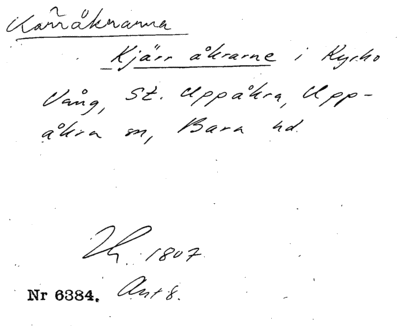 Kärråkrarna
Kjärr åkrarne i Kyrko
Vång, St. Uppåkra, Upp-
åkra sn, Bara hd.
1807
Nr 6384. Akt 8.